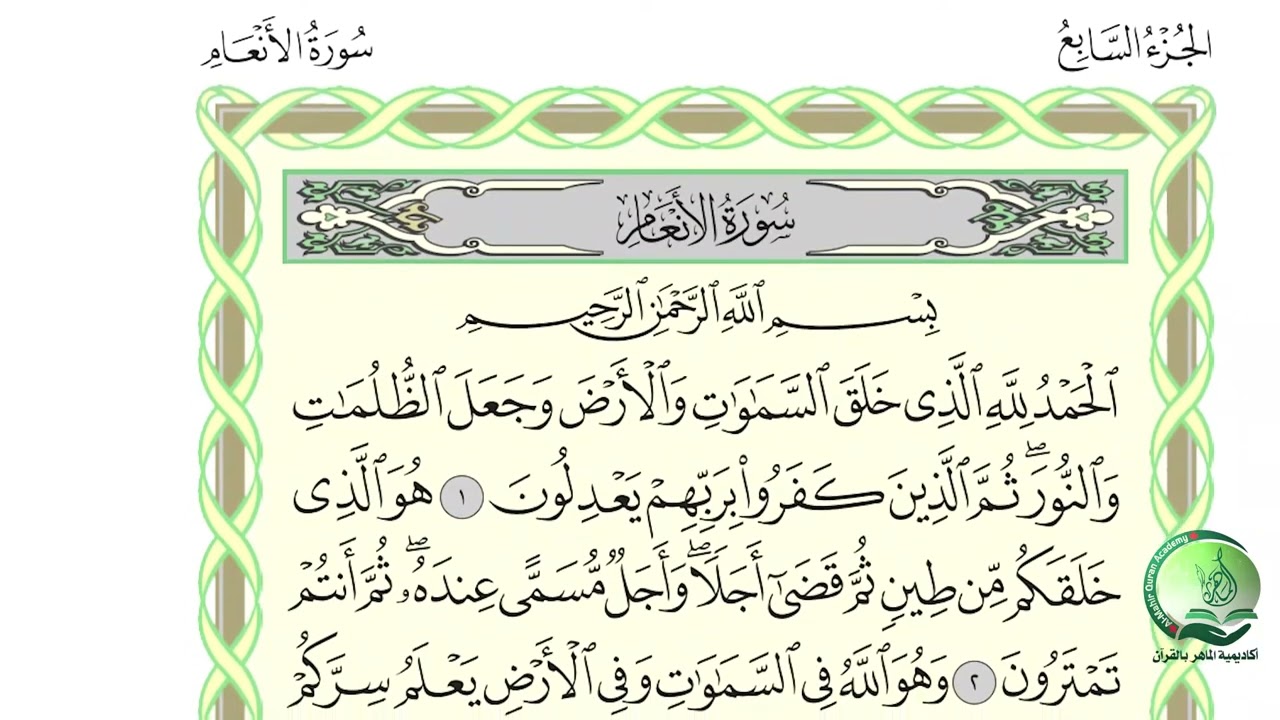 الجُزْءُ السَّابِعُ
سُورَةُ الأَنْعَامِ
سُورَةُ الأَنْعَامِ
بِسْمِ ٱللَّهِ ٱلرَّحْمَٰنِ ٱلرَّحِيمِ
ٱلْحَمْدُ لِلَّهِ ٱلَّذِى خَلَقَ ٱلسَّمَٰوَٰتِ وَٱلْأَرْضَ وَجَعَلَ ٱلظُّلُمَٰتِ
وَٱلنُّورَ ۖ ثُمَّ ٱلَّذِينَ كَفَرُوا۟ بِرَبِّهِمْ يَعْدِلُونَ ١ هُوَ ٱلَّذِى
خَلَقَكُم مِّن طِينٍ ثُمَّ قَضَىٰٓ أَجَلًا ۖ وَأَجَلٌ مُّسَمًّى عِندَهُۥ ۖ ثُمَّ أَنتُمْ
تَمْتَرُونَ ٢ وَهُوَ ٱللَّهُ فِى ٱلسَّمَٰوَٰتِ وَفِى ٱلْأَرْضِ يَعْلَمُ سِرَّكُمْ
Al-Mahir Quran Academy
الماهر
أكاديمية الماهر بالقرآن